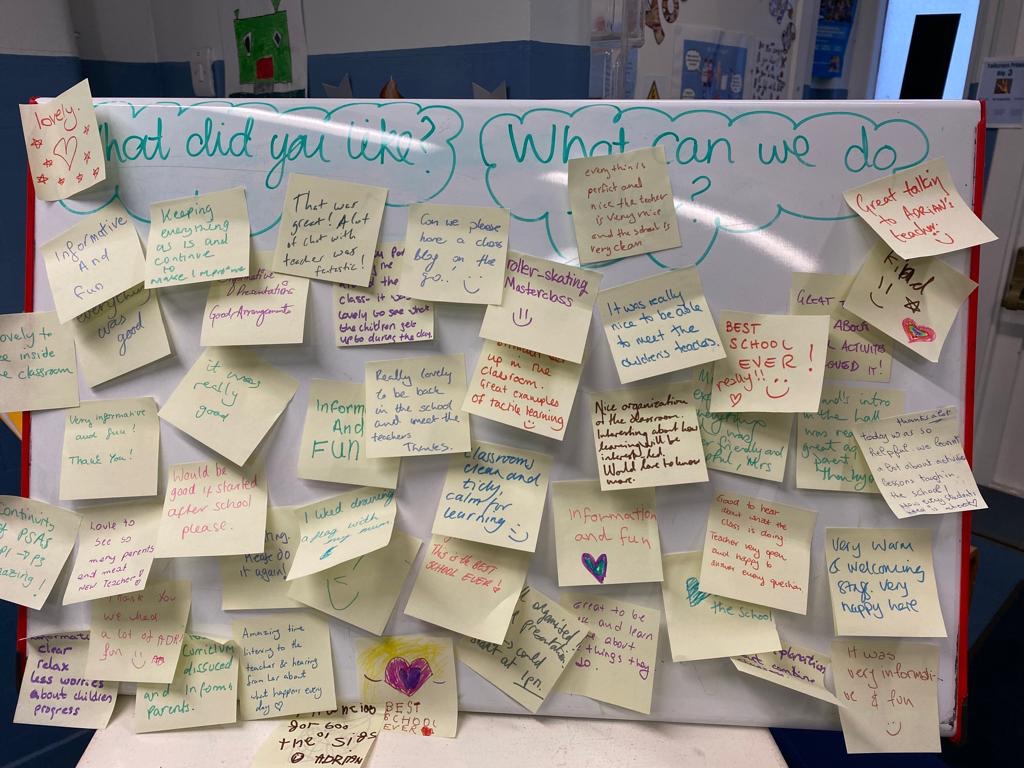 What did you like?
What can we do
?
lovely.
Informative
And
fun
Keeping
everything
as is and
continue
to
make Improve
That was
great! A lot
of chat with
teacher was
fatastic!
Can we please
have a class
blog on the
go..!
everythin is
perfict and
nice the teacher
is very nice
and the school is
very clean
Great talkin
to ADRIAN's
teacher
everything
was
good
Presentations
Good Arrangements
class- it was
lovely to see what
the children gets
up to during the day.
roller-skating
Masterclass
It was really
nice to be able
to meet the
children's teachers.
BEST
SCHOOL
EVER!
really!!
GREAT
ABOUT
ACTIVITES
Kind
!!
Lovely to
see inside
the classroom
it was
really
good
Inform
And
FUN
Really lovely
to be back
in the school
and meet the
teachers
Thanks.
up in the
classroom.
Great examples
of tactile learning
Nice organization
of the classroom.
Interesting about how
learning will be
Would love to know
more.
intro
in the hall
was
great
parent
Thank you
thanks alot
today was so
helpful. we learnt
a lot about activities
lessons taught in
the school
How every students
Very informative
and fun!
Thank You!
Would be
good if started
after school
please.
Classrooms
clean and
tidy,
calm for
learning
Information
and fun
Good to hear
about what the
class is doing
Teacher very open
and happy to
answer every question
Very warm
& welcoming
staff. very
happy here
Continuity
of PSAs
P1 → P2
amazing!
Love to
see so
many parents
and meet
NEW Teacher!
it again!
I liked drawing
a flag with
my mum
This is the BEST
SCHOOL EVER!
the school
Thank You
we had
a lot of
fun
clear
relax
less worries
about children
progress
Curriculum
discussed
and inform
parents.
Amazing time
listening to the
teacher & hearing
from her about
what happens every
day
BEST
SCHOOL
EVER
organised
presentation
could
at 1pm.
Great to be
and learn
about
things they
do.
It was
very informati-
ve & fun
ADRIAN